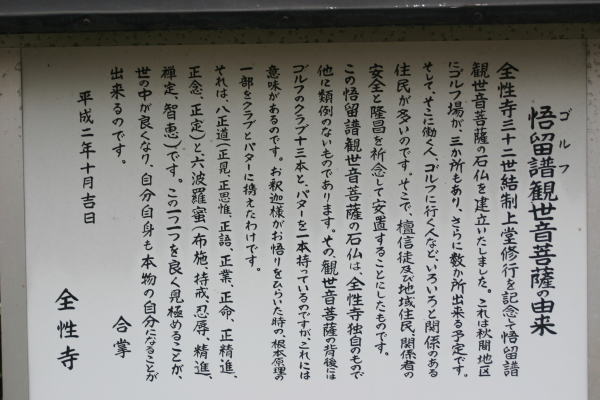 ゴルフ
悟留譜観世音菩薩の由来
全性寺三十二世結制上堂修行を記念して悟留譜
観世音菩薩の石仏を建立いたしました。これは秋間地区
にゴルフ場が、三か所もあり、さらに数か所出来る予定です。
そして、そこに働く人、ゴルフに行く人など、いろいろと関係のある
住民が多いのです。そこで、檀信徒及び地域住民、関係者の
安全と隆昌を祈念して安置することにしたものです。
この悟留譜観世音菩薩の石仏は、全性寺独自のもので
他に類例のないものであります。その、観世音菩薩の背後には
ゴルフのクラブ十三本と、パターを一本持っているのですが、これには
意味があるのです。お釈迦様がお悟りをひらいた時の、根本原理の
一部をクラブとパターに携えたわけです。
それは、八正道(正見、正思惟、正語、正業、正命、正精進、
正念、正定)と六波羅蜜(布施、持戒、忍辱、精進、
禅定、智恵)です。この一つ一つを良く見極めることが、
世の中が良くなり、自分自身も本物の自分になることが
出来るのです。
平成二年十月吉日
合掌
全性寺